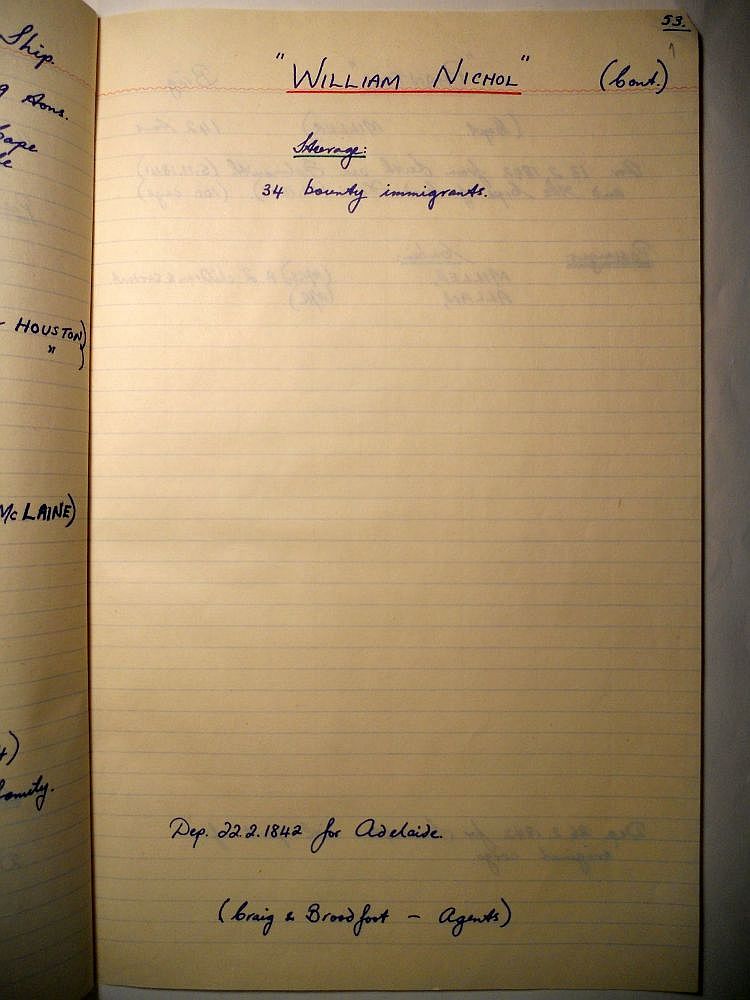 Ship.
Tons.
HOUSTON)
" )
Mc LAINE)
family.
53.
"WILLIAM NICHOL" (Cont.)
Steerage:
34 bounty immigrants.
Dep. 22.2.1842 for Adelaide.
(Craig & Broadfoot - Agents)